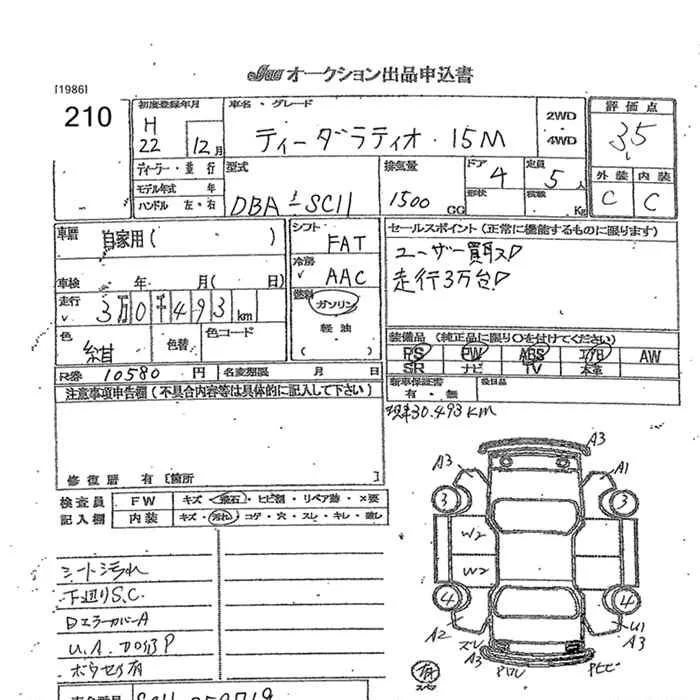 JAA オークション出品申込書
[1986]
210
初度登録年月
H
22 12月
車名・グレード
ティーダラティオ・15M
2WD
・
4WD
評価点
3.5
外装 内装
C C
ディーラー・並行
モデル年式 年
ハンドル 左・右
型式
DBA-SC11
排気量
1500
CC
ドア
4
形状
定員
5人
積載 Kg
車歴 自家用( )
車検 年 月( 日)
走行 3万0千493km
色 紺 色替 色コード
シフト
FAT
冷房
AAC
燃料
ガソリン
軽油
( )
セールスポイント(正常に機能するものに限ります)
ユーザー買入
走行3万台
装備品(純正品に限り○を付けてください)
PS PW ABS エアB AW
SR ナビ TV 本革
新車保証書
有・無
後日品
現車30.493KM
R券 10580円 名変期限 月 日
注意事項申告欄(不具合内容等は具体的に記入して下さい)
修復歴 有[箇所 ]
検査員
記入欄
FW キズ・飛石・ヒビ割・リペア跡・×要
内装 キズ・汚れ・コゲ・穴・スレ・キレ・激し
シート汚れ
下廻りS.C.
DミラーカバーA
A3
A3 A1
3 3
W2
W2
4 4
A2 U1
A3 A3